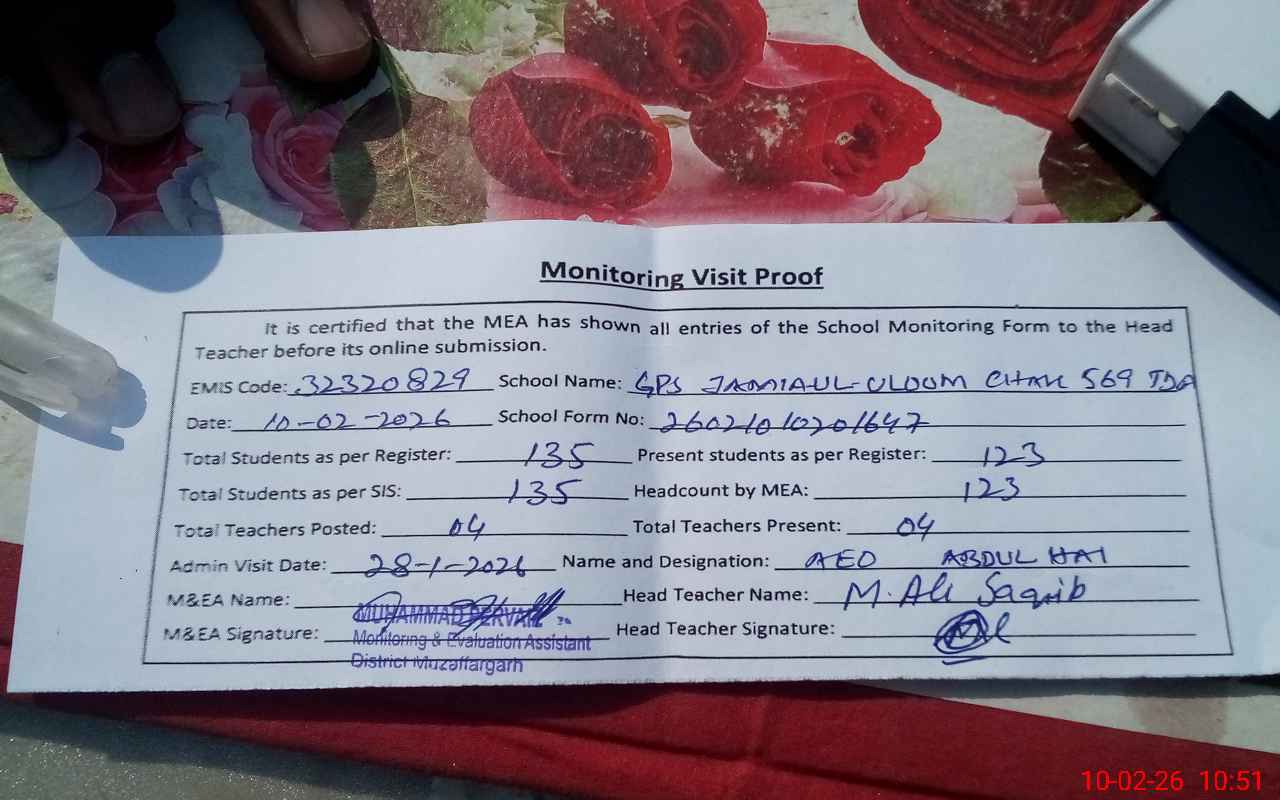 Monitoring Visit Proof
It is certified that the MEA has shown all entries of the School Monitoring Form to the Head
Teacher before its online submission.
EMIS Code: 32320829 School Name: GPS JAMIA-UL-ULOOM CHAK 569 TDA
Date: 10-02-2026 School Form No: 26021010201647
Total Students as per Register: 135 Present students as per Register: 123
Total Students as per SIS: 135 Headcount by MEA: 123
Total Teachers Posted: 04 Total Teachers Present: 04
Admin Visit Date: 28-1-2026 Name and Designation: AEO ABDUL HAI
M&EA Name: MUHAMMAD Head Teacher Name: M. Ali Saqib
M&EA Signature: Monitoring & Evaluation Assistant Head Teacher Signature:
District Muzaffargarh
10-02-26 10:51